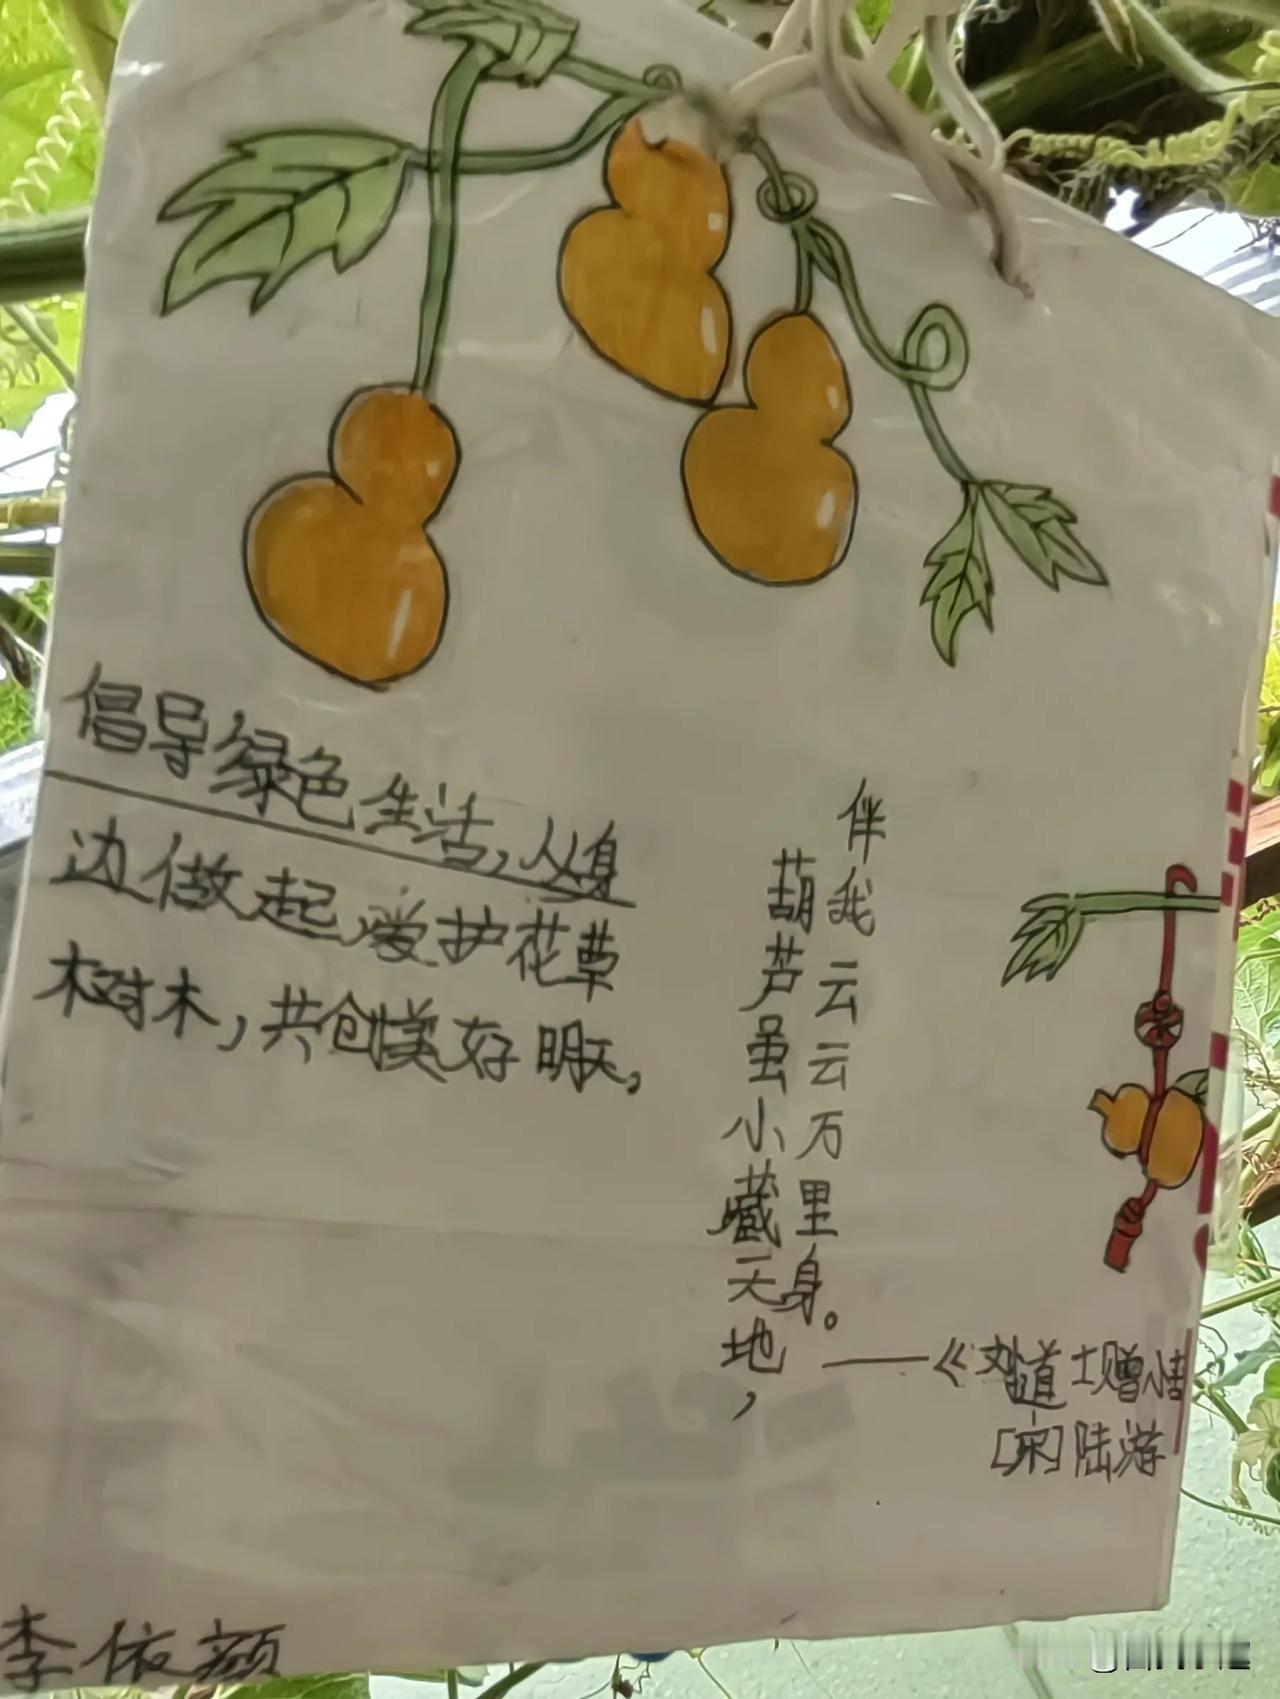 倡导绿色生活,从身
边做起,爱护花草
树木,共创美好明天,
葫芦虽小藏天地,
伴我云云万里身。
——《刘道士赠小
[宋]陆游
李依颜